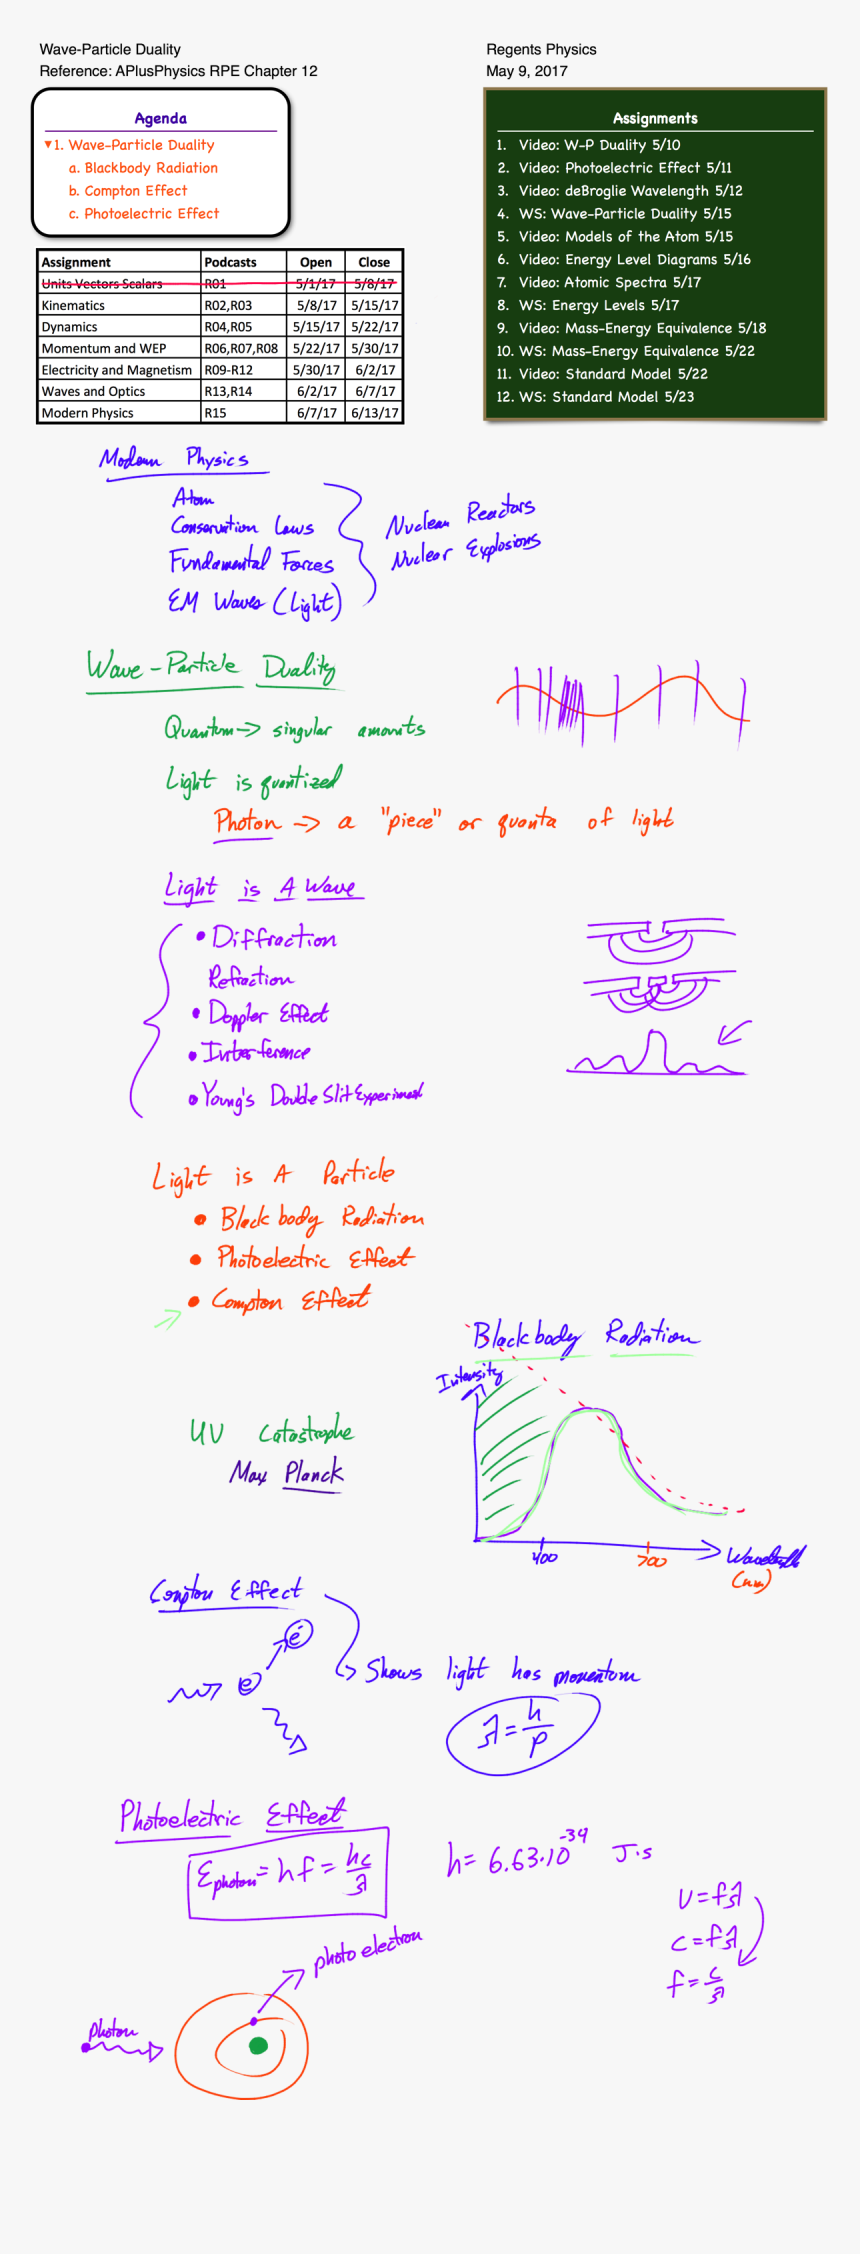 Wave-Particle Duality
Reference: APlusPhysics RPE Chapter 12
Regents Physics
May 9, 2017
Agenda
▼1. Wave-Particle Duality
a. Blackbody Radiation
b. Compton Effect
c. Photoelectric Effect
Assignments
1. Video: W-P Duality 5/10
2. Video: Photoelectric Effect 5/11
3. Video: deBroglie Wavelength 5/12
4. WS: Wave-Particle Duality 5/15
5. Video: Models of the Atom 5/15
6. Video: Energy Level Diagrams 5/16
7. Video: Atomic Spectra 5/17
8. WS: Energy Levels 5/17
9. Video: Mass-Energy Equivalence 5/18
10. WS: Mass-Energy Equivalence 5/22
11. Video: Standard Model 5/22
12. WS: Standard Model 5/23
Assignment Podcasts Open Close
Units Vectors Scalars R01 5/1/17 5/8/17
Kinematics R02,R03 5/8/17 5/15/17
Dynamics R04,R05 5/15/17 5/22/17
Momentum and WEP R06,R07,R08 5/22/17 5/30/17
Electricity and Magnetism R09-R12 5/30/17 6/2/17
Waves and Optics R13,R14 6/2/17 6/7/17
Modern Physics R15 6/7/17 6/13/17
Modern Physics
Atom
Conservation Laws
Fundamental Forces
EM Waves (Light)
Nuclear Reactors
Nuclear Explosions
Wave-Particle Duality
Quantum -> singular amounts
Light is quantized
Photon -> a "piece" or quanta of light
Light is A Wave
• Diffraction
Refraction
• Doppler Effect
• Interference
• Young's Double Slit Experiment
Light is A Particle
• Blackbody Radiation
• Photoelectric Effect
• Compton Effect
Blackbody Radiation
Intensity
UV Catastrophe
Max Planck
400
700
Wavelength
(nm)
Compton Effect
e⁻
e⁻
Shows light has momentum
λ = h/p
Photoelectric Effect
Ephoton = hf = hc/λ
h = 6.63·10⁻³⁴ J·s
v = fλ
c = fλ
f = c/λ
photoelectron
photon